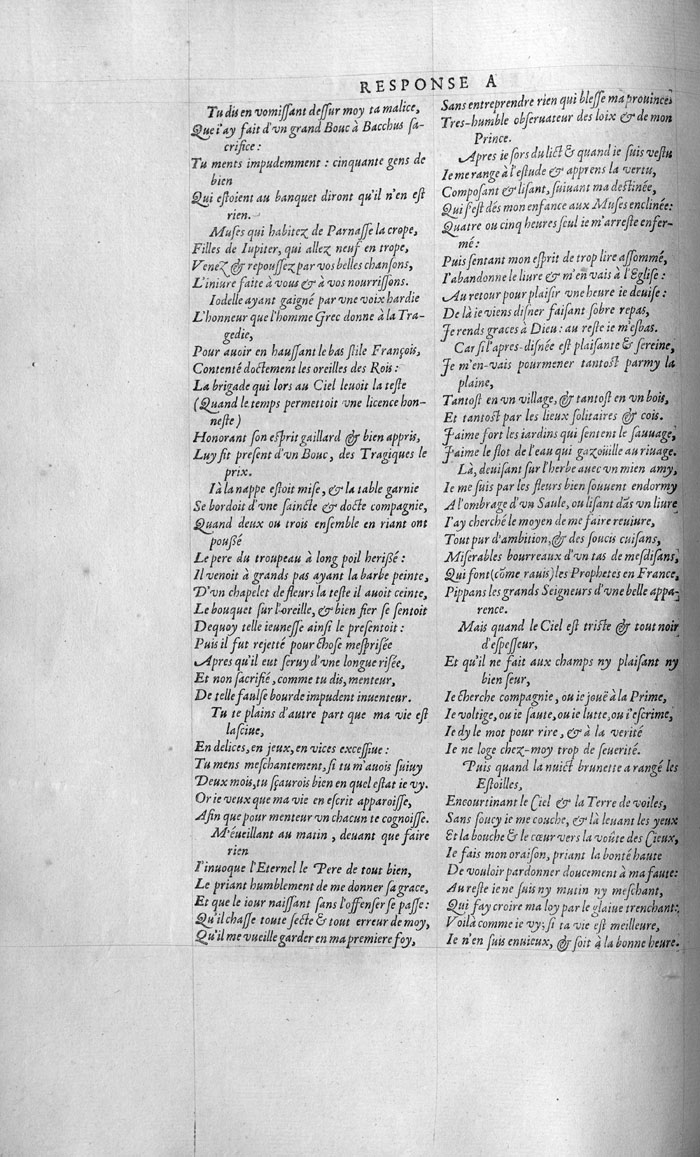 RESPONSE A
Tu dis en vomiſſant deſſur moy ta malice,
Que i'ay fait d'vn grand Bouc à Bacchus ſa-
crifice:
Tu ments impudemment: cinquante gens de
bien
Qui eſtoient au banquet diront qu'il n'en eſt
rien.
Muſes qui habitez de Parnaſſe la crope,
Filles de Iupiter, qui allez neuf en trope,
Venez & repouſſez par vos belles chanſons,
L'iniure faite à vous & à vos nourriſſons.
Iodelle ayant gaigné par vne voix hardie
L'honneur que l'homme Grec donne à la Tra-
gedie,
Pour auoir en hauſſant le bas ſtile François,
Contenté doctement les oreilles des Rois:
La brigade qui lors au Ciel leuoit la teſte
(Quand le temps permettoit vne licence hon-
neſte)
Honorant ſon eſprit gaillard & bien appris,
Luy fit preſent d'vn Bouc, des Tragiques le
prix.
Ià la nappe eſtoit miſe, & la table garnie
Se bordoit d'vne ſaincte & docte compagnie,
Quand deux ou trois enſemble en riant ont
pouſſé
Le pere du troupeau à long poil heriſſé:
Il venoit à grands pas ayant la barbe peinte,
D'vn chapelet de fleurs la teſte il auoit ceinte,
Le bouquet ſur l'oreille, & bien fier ſe ſentoit
Dequoy telle ieuneſſe ainſi le preſentoit:
Puis il fut rejetté pour choſe meſpriſée
Apres qu'il eut ſeruy d'vne longue riſée,
Et non ſacrifié, comme tu dis, menteur,
De telle faulſe bourde impudent inuenteur.
Tu te plains d'autre part que ma vie eſt
laſciue,
En delices, en jeux, en vices exceſſiue:
Tu mens meſchantement, ſi tu m'auois ſuiuy
Deux mois, tu ſçaurois bien en quel eſtat ie vy.
Or ie veux que ma vie en eſcrit apparoiſſe,
Afin que pour menteur vn chacun te cognoiſſe.
M'éueillant au matin, deuant que faire
rien
I'inuoque l'Eternel le Pere de tout bien,
Le priant humblement de me donner ſa grace,
Et que le iour naiſſant ſans l'offenſer ſe paſſe:
Qu'il chaſſe toute ſecte & tout erreur de moy,
Qu'il me vueille garder en ma premiere foy,
Sans entreprendre rien qui bleſſe ma prouince,
Tres-humble obſeruateur des loix & de mon
Prince.
Apres ie ſors du lict & quand ie ſuis veſtu
Ie me range à l'eſtude & apprens la vertu,
Compoſant & liſant, ſuiuant ma deſtinée,
Qui s'eſt dés mon enfance aux Muſes enclinée:
Quatre ou cinq heures ſeul ie m'arreſte enfer-
mé:
Puis ſentant mon eſprit de trop lire aſſommé,
I'abandonne le liure & m'en vais à l'Egliſe:
Au retour pour plaiſir vne heure ie deuiſe:
De là ie viens diſner faiſant ſobre repas,
Je rends graces à Dieu: au reſte ie m'eſbas.
Car ſi l'apres-diſnée eſt plaiſante & ſereine,
Je m'en-vais pourmener tantoſt parmy la
plaine,
Tantoſt en vn village, & tantoſt en vn bois,
Et tantoſt par les lieux ſolitaires & cois.
J'aime fort les iardins qui ſentent le ſauuage,
J'aime le flot de l'eau qui gazoüille au riuage.
Là, deuiſant ſur l'herbe auec vn mien amy,
Ie me ſuis par les fleurs bien ſouuent endormy
A l'ombrage d'vn Saule, ou liſant dãs vn liure
I'ay cherché le moyen de me faire reuiure,
Tout pur d'ambition, & des ſoucis cuiſans,
Miſerables bourreaux d'vn tas de meſdiſans,
Qui font (cõme rauis) les Prophetes en France,
Pippans les grands Seigneurs d'vne belle appa-
rence.
Mais quand le Ciel eſt triſte & tout noir
d'eſpeſſeur,
Et qu'il ne fait aux champs ny plaiſant ny
bien ſeur,
Ie cherche compagnie, ou ie jouë à la Prime,
Ie voltige, ou ie ſaute, ou ie lutte, ou i'eſcrime,
Ie dy le mot pour rire, & à la verité
Ie ne loge chez-moy trop de ſeuerité.
Puis quand la nuict brunette a rangé les
Eſtoilles,
Encourtinant le Ciel & la Terre de voiles,
Sans ſoucy ie me couche, & là leuant les yeux
Et la bouche & le cœur vers la voûte des Cieux,
Ie fais mon oraiſon, priant la bonté haute
De vouloir pardonner doucement à ma faute:
Au reſte ie ne ſuis ny mutin ny meſchant,
Qui fay croire ma loy par le glaiue trenchant:
Voilà comme ie vy; ſi ta vie eſt meilleure,
Ie n'en ſuis enuieux, & ſoit à la bonne heure.